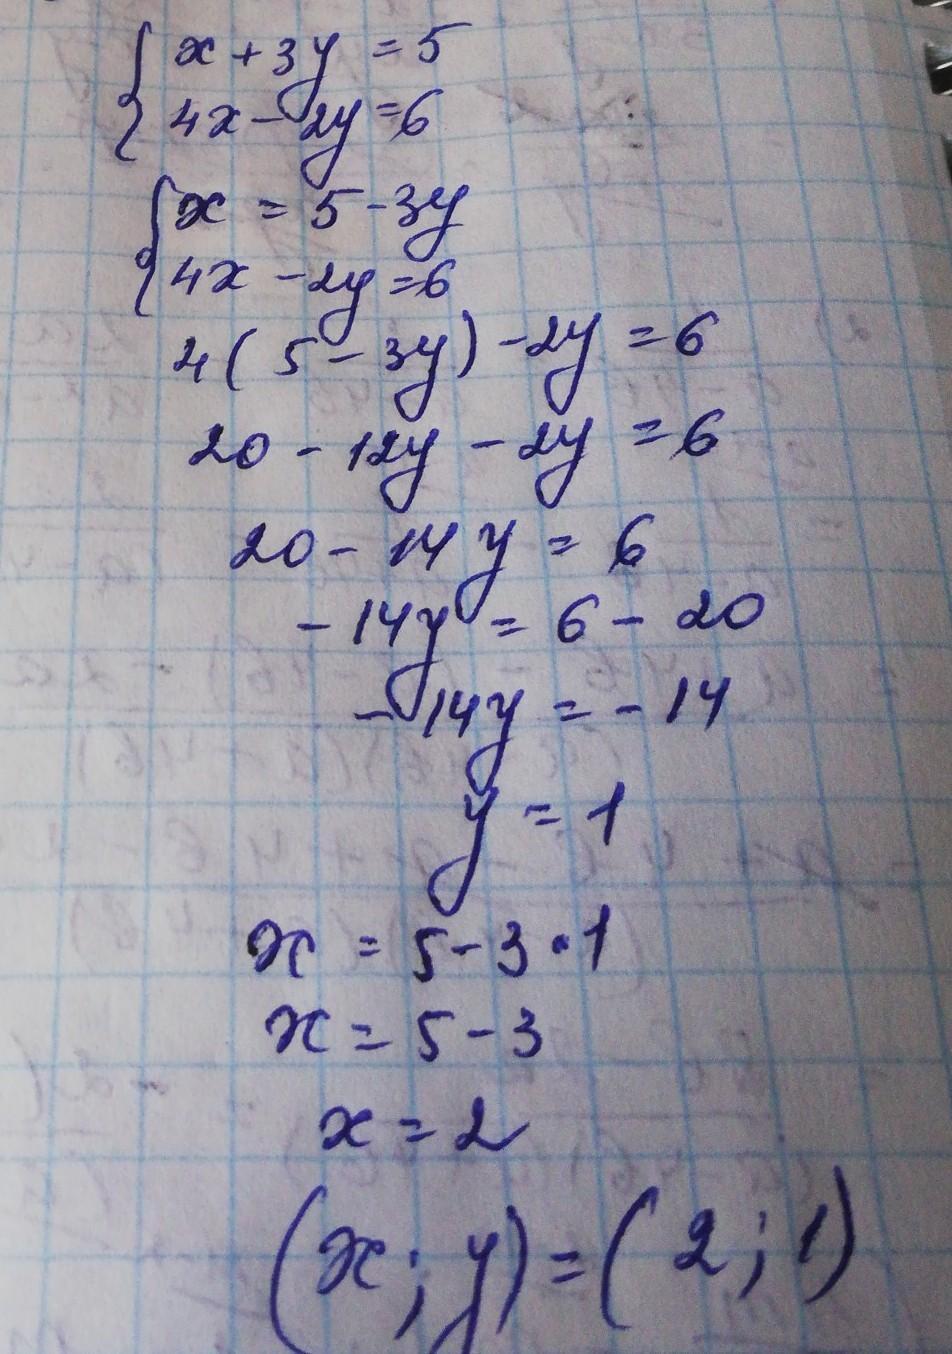 { x + 3y = 5
4x - 2y = 6
{ x = 5 - 3y
4x - 2y = 6
4(5 - 3y) - 2y = 6
20 - 12y - 2y = 6
20 - 14y = 6
- 14y = 6 - 20
- 14y = - 14
y = 1
x = 5 - 3 · 1
x = 5 - 3
x = 2
(x; y) = (2; 1)